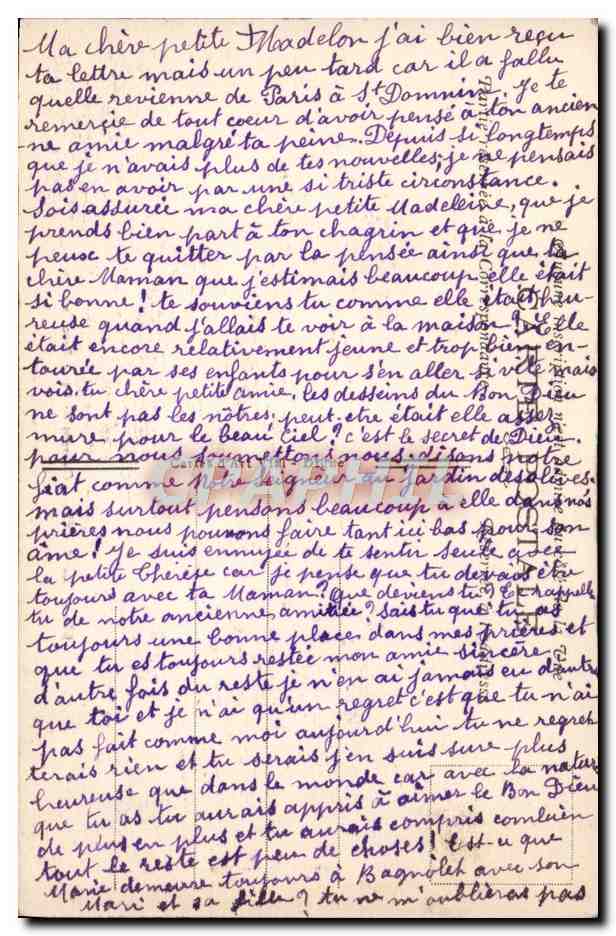 Ma chère petite Madelon j'ai bien reçu
ta lettre mais un peu tard car il a fallu
quelle revienne de Paris à St Domnin. Je te
remercie de tout cœur d'avoir pensé à ton ancien
ne amie malgré ta peine. Depuis si longtemps
que je n'avais plus de tes nouvelles, je ne pensais
pas en avoir par une si triste circonstance.
Sois assurée ma chère petite Madeleine, que je
prends bien part à ton chagrin et que je ne
peux te quitter par la pensée ainsi que ta
chère Maman que j'estimais beaucoup elle était
si bonne! te souviens tu comme elle était heu-
reuse quand j'allais te voir à la maison? Elle
était encore relativement jeune et trop bien en-
tourée par ses enfants pour s'en aller si vite mais
vois-tu chère petite amie, les desseins du Bon Dieu
ne sont pas les nôtres, peut-etre était elle assez
mure pour le beau Ciel? c'est le secret de Dieu
pour nous soumettons nous disons notre
fiat comme Notre Seigneur au jardin des olives.
mais surtout pensons beaucoup à elle dans nos
prières nous pouvons faire tant ici bas pour son
âme! Je suis ennuyée de te sentir seule avec
la petite Thérèse car je pense que tu devais être
toujours avec ta Maman? que deviens tu? te rappelle
tu de notre ancienne amitiée? Sais tu que tu as
toujours une bonne place dans mes prières et
que tu es toujours restée mon amie sincère
d'autre fois du reste je n'en ai jamais eu d'autre
que toi et je n'ai qu'un regret c'est que tu n'ai
pas fait comme moi aujourd'hui tu ne regret-
terais rien et tu serais j'en suis sure plus
heureuse que dans le monde car avec la nature
que tu as tu aurais appris à aimer le Bon Dieu
de plus en plus et tu aurais compris combien
tout le reste est peu de choses! Est-ce que
Marie demeure toujours à Bagnolet avec son
Mari et sa fille? tu ne m'oublieras pas
CARTE POSTALE
Cartes d'Art
CPAPHIL